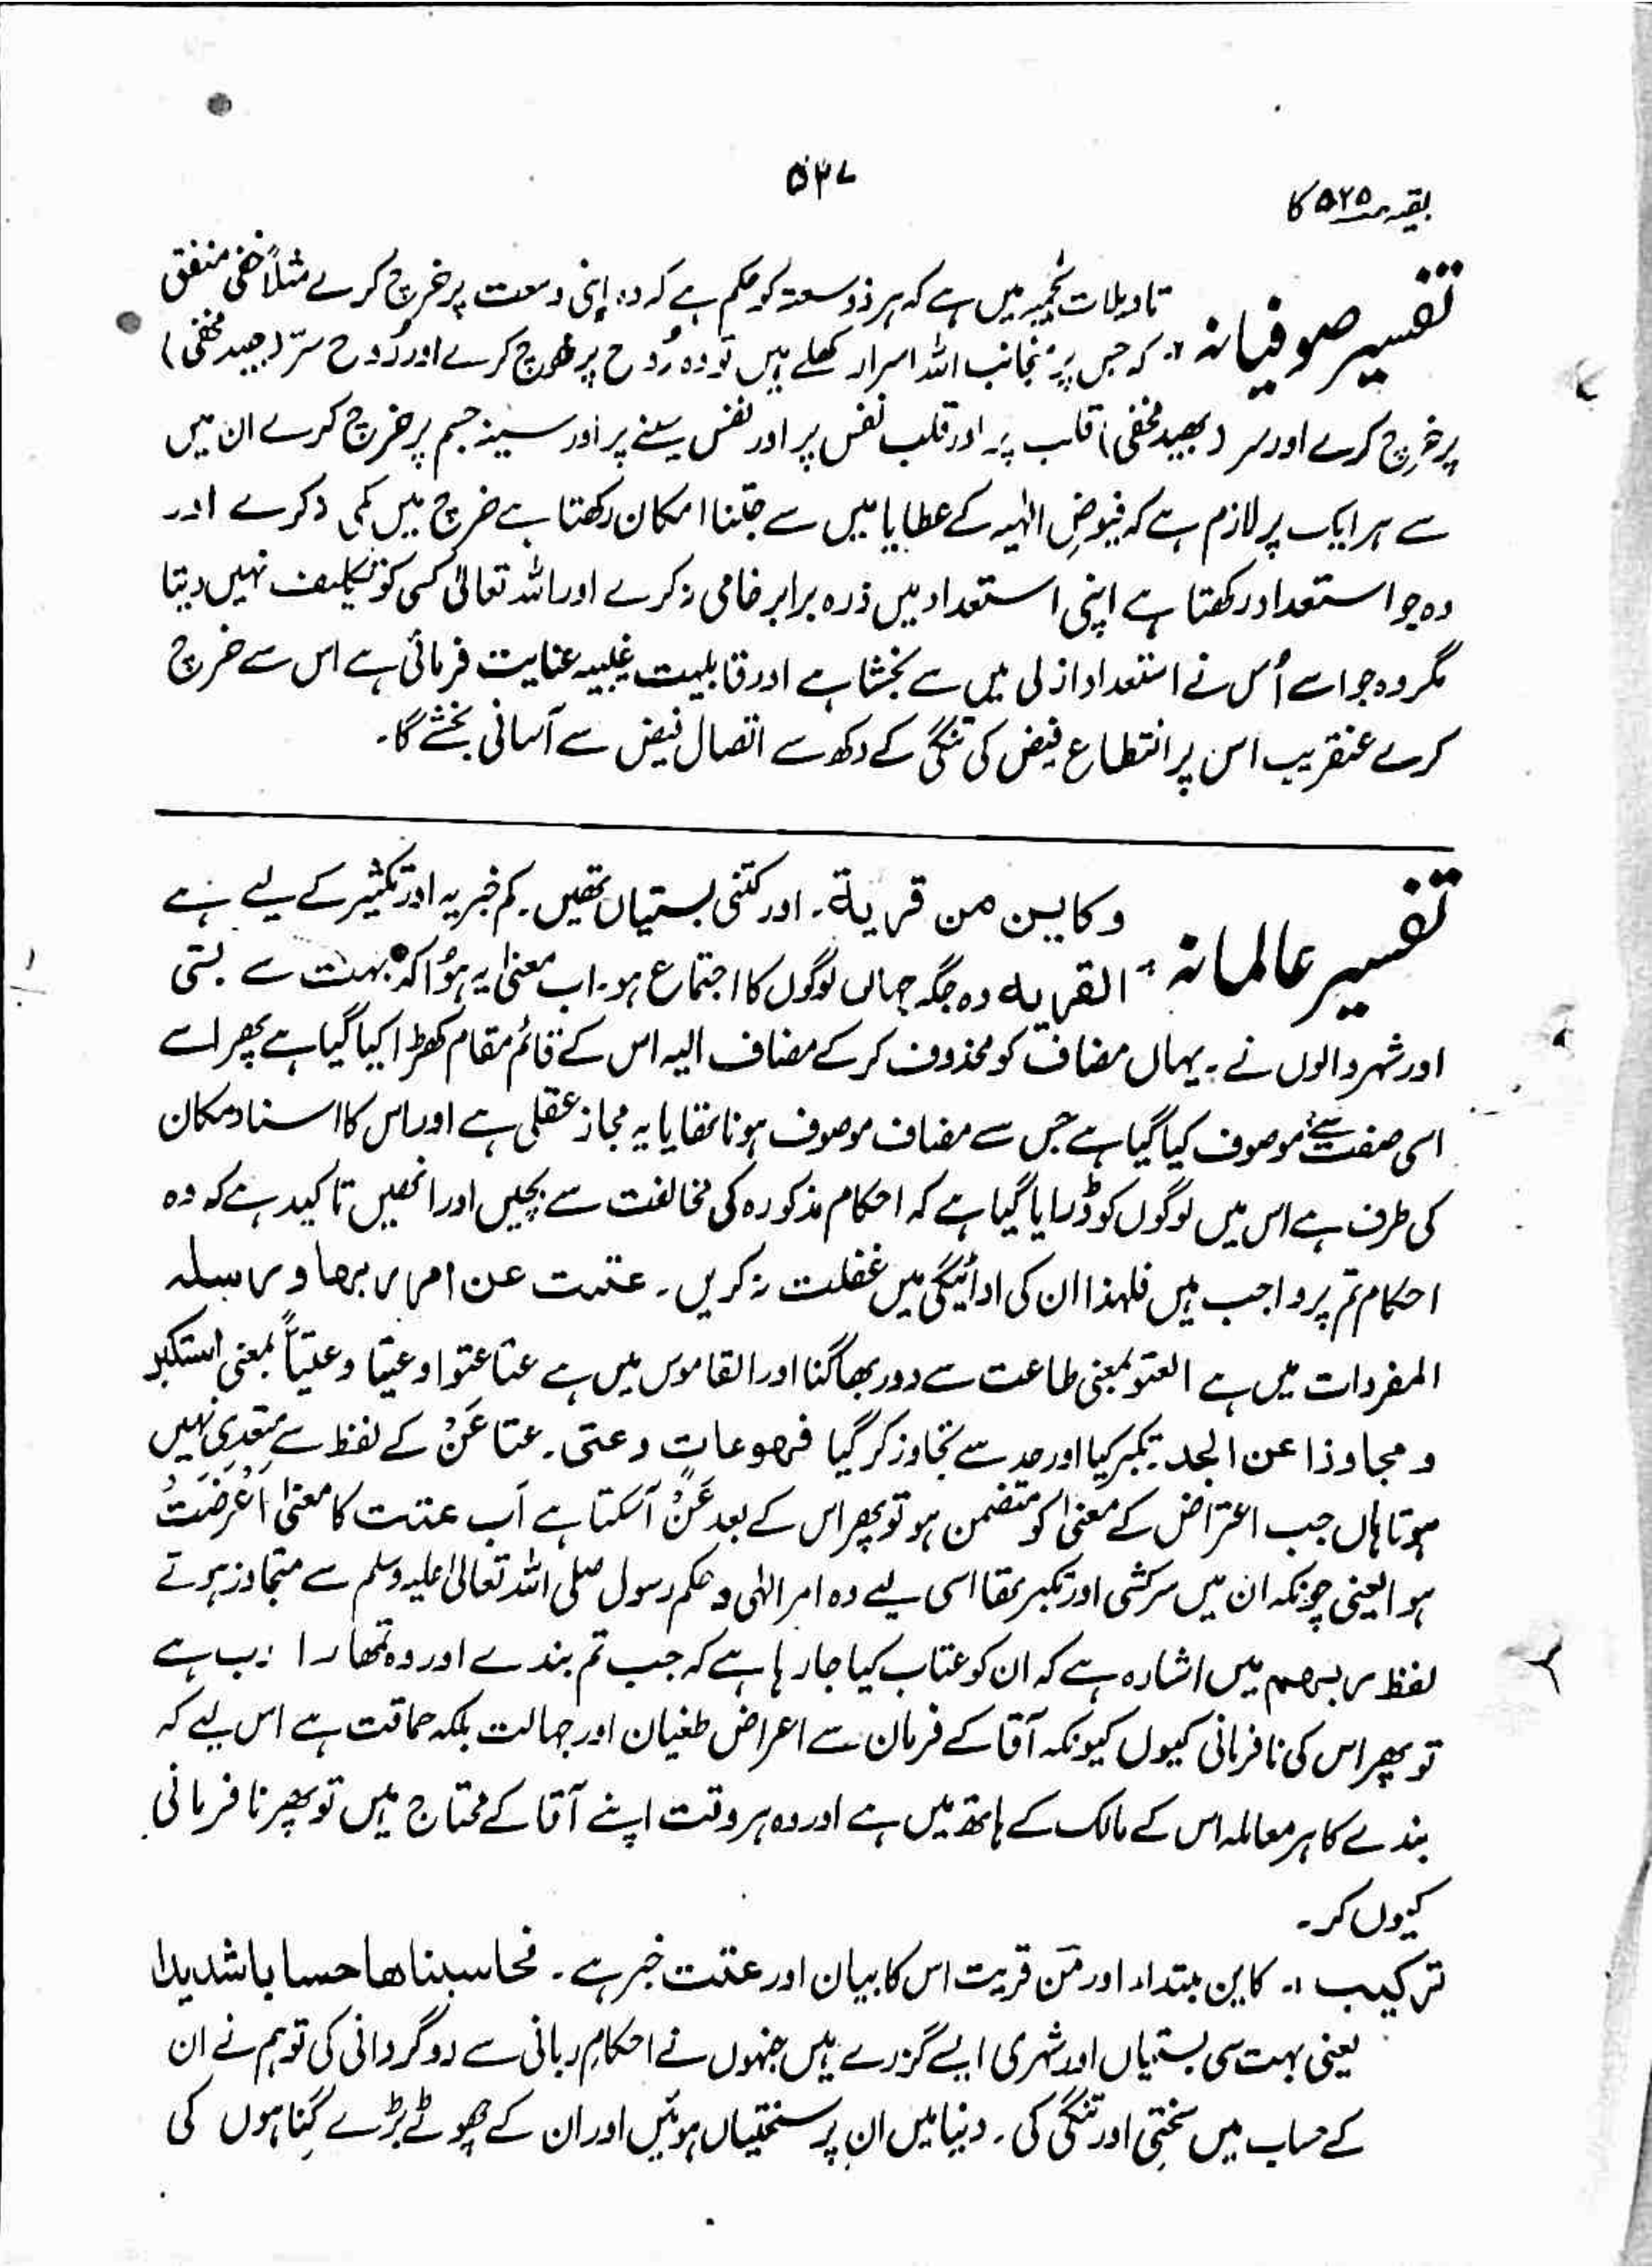 ۵۲۷
بقیہ ص۵۲۵ کا
تفسیر صوفیانہ :۔ تاویلات نجمیہ میں ہے کہ ہر ذو وسعۃ کو حکم ہے کہ وہ اپنی وسعت پر خرچ کرے مثلاً خفی منفق
کہ جس پر منجانب اللہ اسرار کھلے ہیں تو وہ رُوح پر خرچ کرے اور رُوح سرّ (بھید مخفی)
پر خرچ کرے اور سر (بھید مخفی) قلب پر اور قلب نفس پر اور نفس سینے پر اور سینہ جسم پر خرچ کرے ان میں
سے ہر ایک پر لازم ہے کہ فیوضِ الٰہیہ کے عطایا میں سے جتنا امکان رکھتا ہے خرچ میں کمی نہ کرے اور
وہ جو استعداد رکھتا ہے اپنی استعداد میں ذرہ برابر خامی نہ کرے اور اللہ تعالیٰ کسی کو تکلیف نہیں دیتا
مگر وہ جو اسے اُس نے استعداد ازلی میں سے بخشا ہے اور قابلیت غیبیہ عنایت فرمائی ہے اس سے خرچ
کرے عنقریب اس پر انقطاع فیض کی تنگی کے دکھ سے اتصال فیض سے آسانی بخشے گا۔
تفسیر عالمانہ :۔ وکاین من قریۃ۔ اور کتنی بستیاں تھیں۔ کم خبریہ اور تکثیر کے لیے ہے
القریہ وہ جگہ جہاں لوگوں کا اجتماع ہو۔ اب معنیٰ یہ ہوُا کہ بہت سے بستی
اور شہر والوں نے۔ یہاں مضاف کو محذوف کر کے مضاف الیہ اس کے قائم مقام کھڑا کیا گیا ہے پھر اسے
اسی صفت سے موصوف کیا گیا ہے جس سے مضاف موصوف ہونا تھا یا یہ مجاز عقلی ہے اور اس کا اسناد مکان
کی طرف ہے اس میں لوگوں کو ڈرایا گیا ہے کہ احکام مذکورہ کی مخالفت سے بچیں اور انھیں تاکید ہے کہ وہ
احکام تم پر واجب ہیں فلہذا ان کی ادائیگی میں غفلت نہ کریں۔ عتت عن امر ربھا و رسلہ
المفردات میں ہے العتو بمعنی طاعت سے دور بھاگنا اور القاموس میں ہے عتا عتوا وعیتا وعتیاً بمعنی استکبر
و مجاوذا عن الحد۔ تکبر کیا اور حد سے تجاوز کر گیا فھو عات و عتی۔ عتا عَنْ کے لفظ سے متعدی نہیں
ہوتا ہاں جب اعتراض کے معنیٰ کو متضمن ہو تو پھر اس کے بعد عَنْ آسکتا ہے اَب عتت کا معنیٰ اَعْرَضَتْ
ہوا یعنی چونکہ ان میں سرکشی اور تکبر تھا اسی لیے وہ امر الٰہی و حکم رسول صلی اللہ تعالیٰ علیہ وسلم سے متجاوز ہوتے
لفظ ربھم میں اشارہ ہے کہ ان کو عتاب کیا جارہا ہے کہ جب تم بندے اور وہ تمھارا رب ہے
تو پھر اس کی نافرمانی کیوں کیونکہ آقا کے فرمان سے اعراض طغیان اور جہالت بلکہ حماقت ہے اس لیے کہ
بندے کا ہر معاملہ اس کے مالک کے ہاتھ میں ہے اور وہ ہر وقت اپنے آقا کے محتاج ہیں تو پھر نافرمانی
کیوں کر۔
ترکیب :۔ کاین مبتداء اور مَن قریت اس کا بیان اور عتت خبر ہے۔ فحاسبناھا حسابا شدیدا
یعنی بہت سی بستیاں اور شہری ایسے گزرے ہیں جنہوں نے احکامِ ربانی سے روگردانی کی تو ہم نے ان
کے حساب میں سختی اور تنگی کی۔ دنیا میں ان پر سختیاں ہوئیں اور ان کے چھوٹے بڑے گناہوں کی